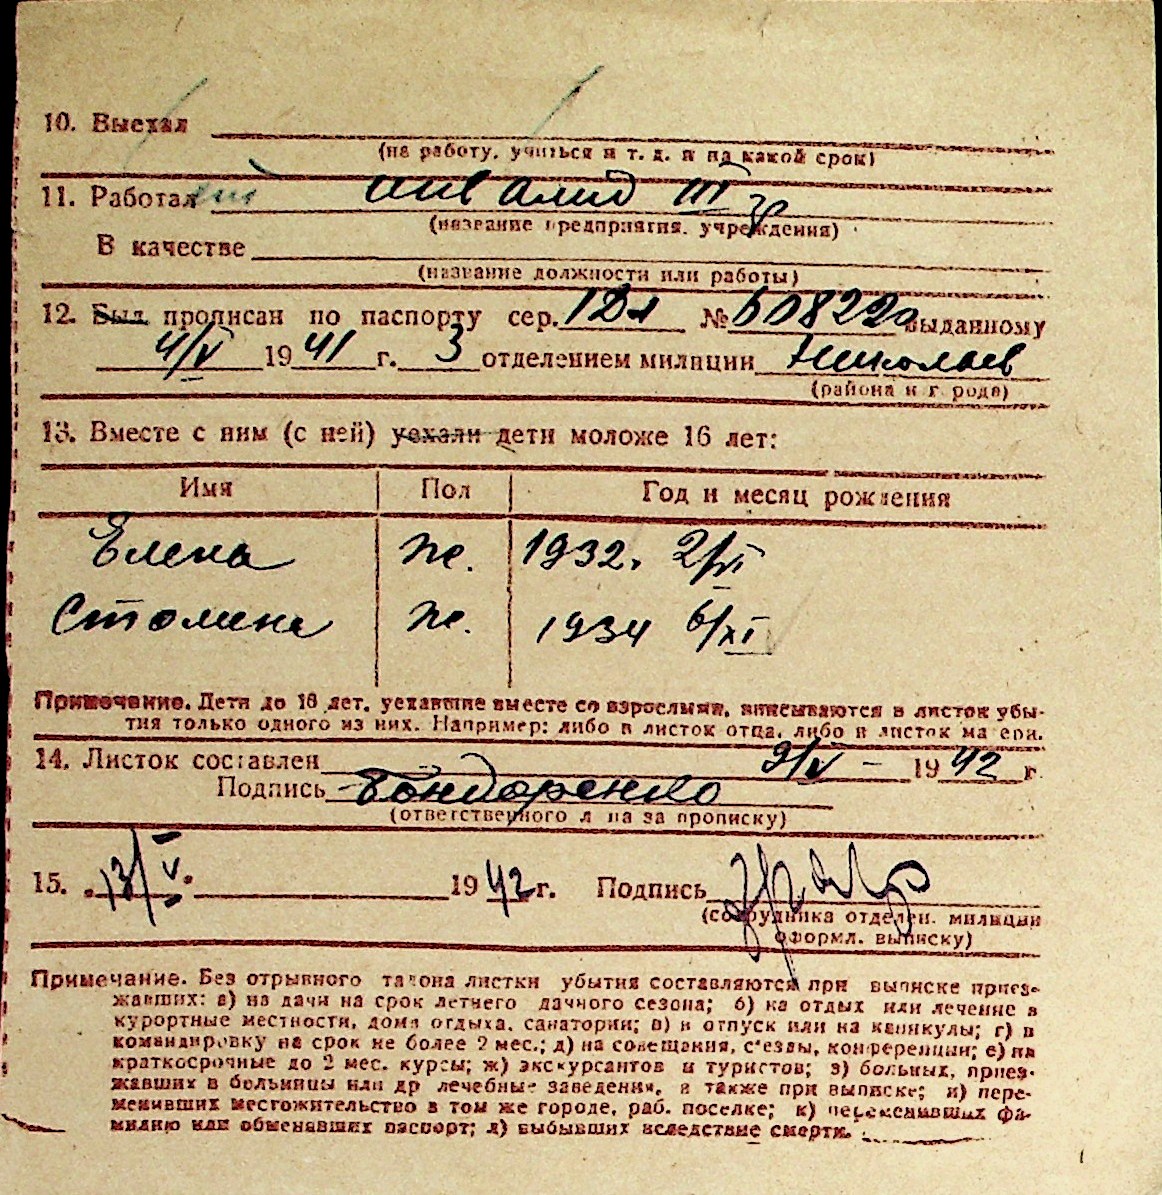 10. Выехал
(на работу, учиться и т. д. и на какой срок)
11. Работал инвалид III гр
(название предприятия, учреждения)
В качестве
(название должности или работы)
12. Был прописан по паспорту сер. № 608220 выданному
4/V 1941 г. 3 отделением милиции Николаев
(района и города)
13. Вместе с ним (с ней) уехали дети моложе 16 лет:
Имя Пол Год и месяц рождения
Елена ж. 1932. 2/VI
Сталина ж. 1934 6/XI
Примечание. Дети до 16 лет, уехавшие вместе со взрослыми, вписываются в листок убы-
тия только одного из них. Например: либо в листок отца, либо в листок матери.
14. Листок составлен 9/V - 1942 г.
Подпись Бондаренко
(ответственного лица за прописку)
15. 13/V. 1942 г. Подпись
(сотрудника отделен. милиции
оформл. выписку)
Примечание. Без отрывного талона листки убытия составляются при выписке приез-
жавших: а) на дачи на срок летнего дачного сезона; б) на отдых или лечение в
курортные местности, дома отдыха, санатории; в) в отпуск или на каникулы; г) в
командировку на срок не более 2 мес.; д) на совещания, с'езды, конференции; е) на
краткосрочные до 2 мес. курсы; ж) экскурсантов и туристов; з) больных, приез-
жавших в больницы или др лечебные заведения, а также при выписке; и) пере-
менивших местожительство в том же городе, раб. поселке; к) переменивших фа-
милию или обменавших паспорт; л) выбывших вследствие смерти.